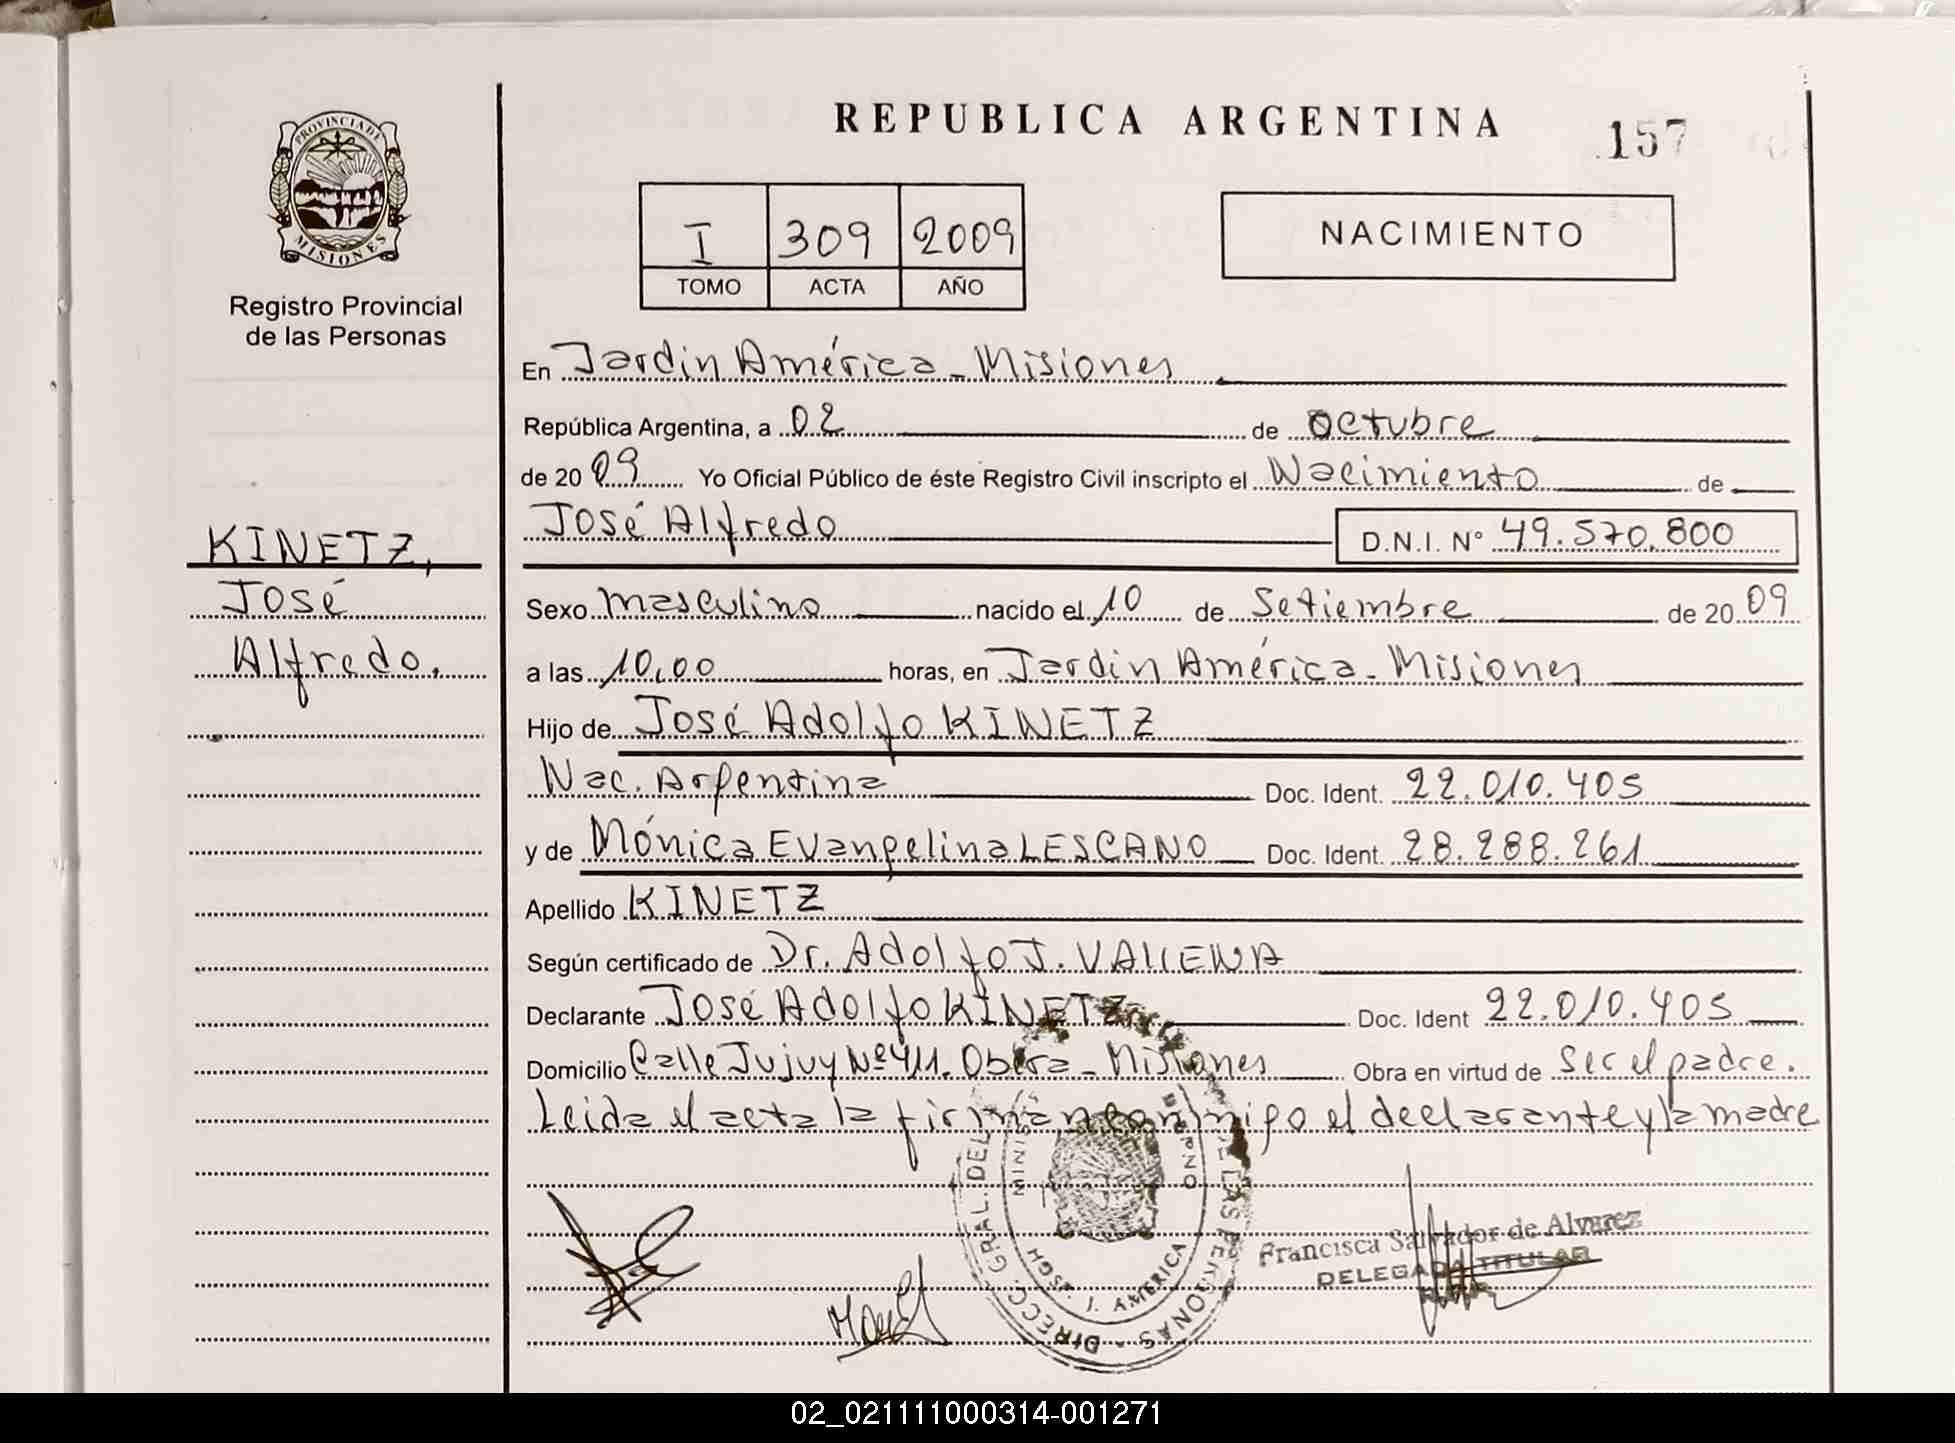 REPUBLICA ARGENTINA
157
PROVINCIA DE
MISIONES
Registro Provincial
de las Personas
I 309 2009
TOMO ACTA AÑO
NACIMIENTO
En Jardin América - Misiones
República Argentina, a 02 de octubre
de 20 09 Yo Oficial Público de éste Registro Civil inscripto el Nacimiento de
José Alfredo D.N.I. N° 49.570.800
KINETZ,
José
Alfredo.
Sexo masculino nacido el 10 de Setiembre de 20 09
a las 10,00 horas, en Jardin América - Misiones
Hijo de José Adolfo KINETZ
Nac. Argentina Doc. Ident. 22.010.405
y de Mónica Evangelina LESCANO Doc. Ident. 28.288.261
Apellido KINETZ
Según certificado de Dr. Adolfo J.
Declarante José Adolfo KINETZ Doc. Ident 22.010.405
Domicilio Calle Jujuy Nº 411. Oberá - Misiones Obra en virtud de ser el padre.
Leida el acta la firman conmigo el declarante y la madre
DIRECC. GRAL. DEL LAS PERSONAS
J. AMERICA
Francisca Salvador de Alvarez
DELEGADA TITULAR
02_021111000314-001271